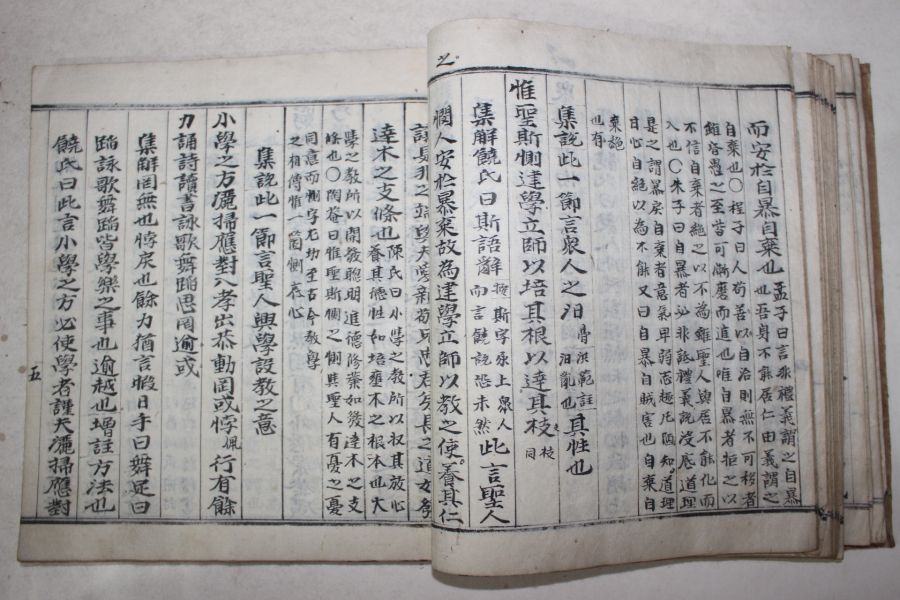 而安於自暴自棄也 孟子曰言非禮義謂之自暴
也吾身不能居仁由義謂之
自棄也○程子曰人苟善以自治則無不可移者
雖昏愚之至皆可漸磨而進也唯自暴者拒之以
不信自棄者絶之以不爲雖聖人與居不能化而
入也○朱子曰自暴者
是之謂暴戾自棄者意氣卑弱志趣凡陋知道理
日心自絶以爲不能又曰自暴自賊害也自棄自
棄
也 有
集說此一節言衆人之汨 骨洪範註 其性也
汨亂也
惟聖斯惻建學立師以培其根以達其枝
枝同
集解饒氏曰斯語辭 按斯字承上衆人 此言聖人
而言饒說恐未然
憫人安於暴棄故爲建學立師以敎之使養其仁
達木之支條也 陳氏曰小學之敎所以收其放心
養其德性如培壅木之根本也大
學之敎所以開發聰明進德修業如發達木之支
條也○陶菴曰惟聖斯惻之惻與聖人有憂之憂
同意而惻字尤切至古今敎學
之相傳惟一箇惻 心
集說此一節言聖人興學設敎之意
小學之方灑掃應對入孝出恭動罔或悖 行有餘
力誦詩讀書詠歌舞蹈思罔逾或
集解罔無也悖戾也餘力猶言暇日手曰舞足曰
蹈詠歌舞蹈皆學樂之事也逾越也增註方法也
饒氏曰此言小學之方必使學者謹夫灑掃應對
五